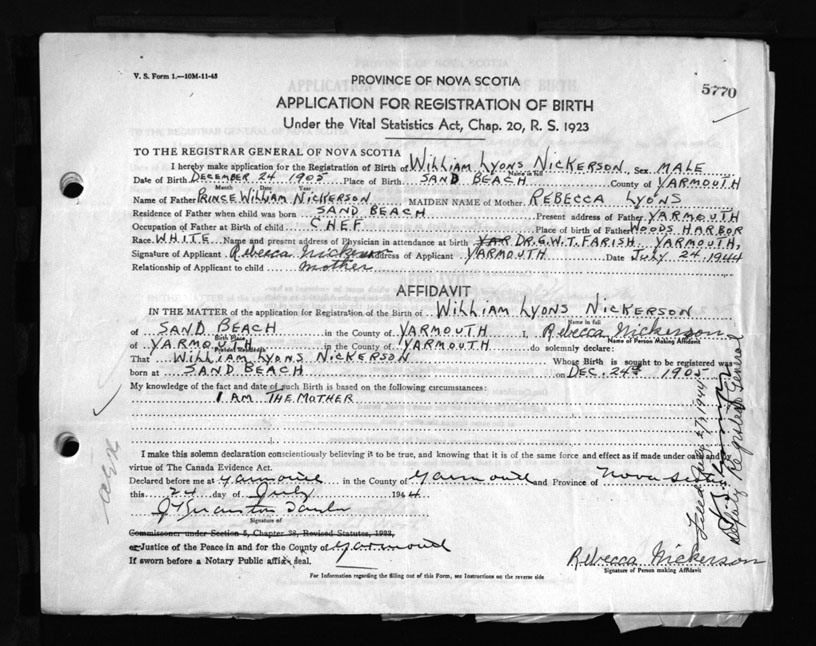 V. S. Form 1.—10M-11-43
5770
PROVINCE OF NOVA SCOTIA
APPLICATION FOR REGISTRATION OF BIRTH
Under the Vital Statistics Act, Chap. 20, R. S. 1923
TO THE REGISTRAR GENERAL OF NOVA SCOTIA
I hereby make application for the Registration of Birth of WILLIAM LYONS NICKERSON, Sex MALE
Name in full
Date of Birth DECEMBER 24 1905 Place of Birth SAND BEACH County of YARMOUTH
Month Date Year
Name of Father PRINCE WILLIAM NICKERSON MAIDEN NAME of Mother REBECCA LYONS
Residence of Father when child was born SAND BEACH Present address of Father YARMOUTH
Occupation of Father at Birth of child CHEF Place of Birth of Father WOODS HARBOR
Race WHITE Name and present address of Physician in attendance at birth DR. G.W.T. FARISH YARMOUTH,
Signature of Applicant Rebecca Nickerson Address of Applicant YARMOUTH Date July 24, 1944
Relationship of Applicant to child mother
AFFIDAVIT
IN THE MATTER of the application for Registration of the Birth of WILLIAM LYONS NICKERSON
Name in full
of SAND BEACH in the County of YARMOUTH I, Rebecca Nickerson
Birth Place Name of Person Making Affidavit
of YARMOUTH in the County of YARMOUTH do solemnly declare:
Present Residence
That WILLIAM LYONS NICKERSON Whose Birth is sought to be registered was
born at SAND BEACH on DEC. 24th 1905
My knowledge of the fact and date of such Birth is based on the following circumstances:
I AM THE MOTHER
I make this solemn declaration conscientiously believing it to be true, and knowing that it is of the same force and effect as if made under oath and by
virtue of The Canada Evidence Act.
Declared before me at Yarmouth in the County of Yarmouth and Province of Nova Scotia
this 24 day of July 1944
Signature of
Commissioner under Section 5, Chapter 38, Revised Statutes, 1923,
or Justice of the Peace in and for the County of Yarmouth
If sworn before a Notary Public affix seal.
Rebecca Nickerson
Signature of Person making Affidavit
For Information regarding the filling out of this Form, see Instructions on the reverse side
Filed July 27, 1944
Deputy Registrar General